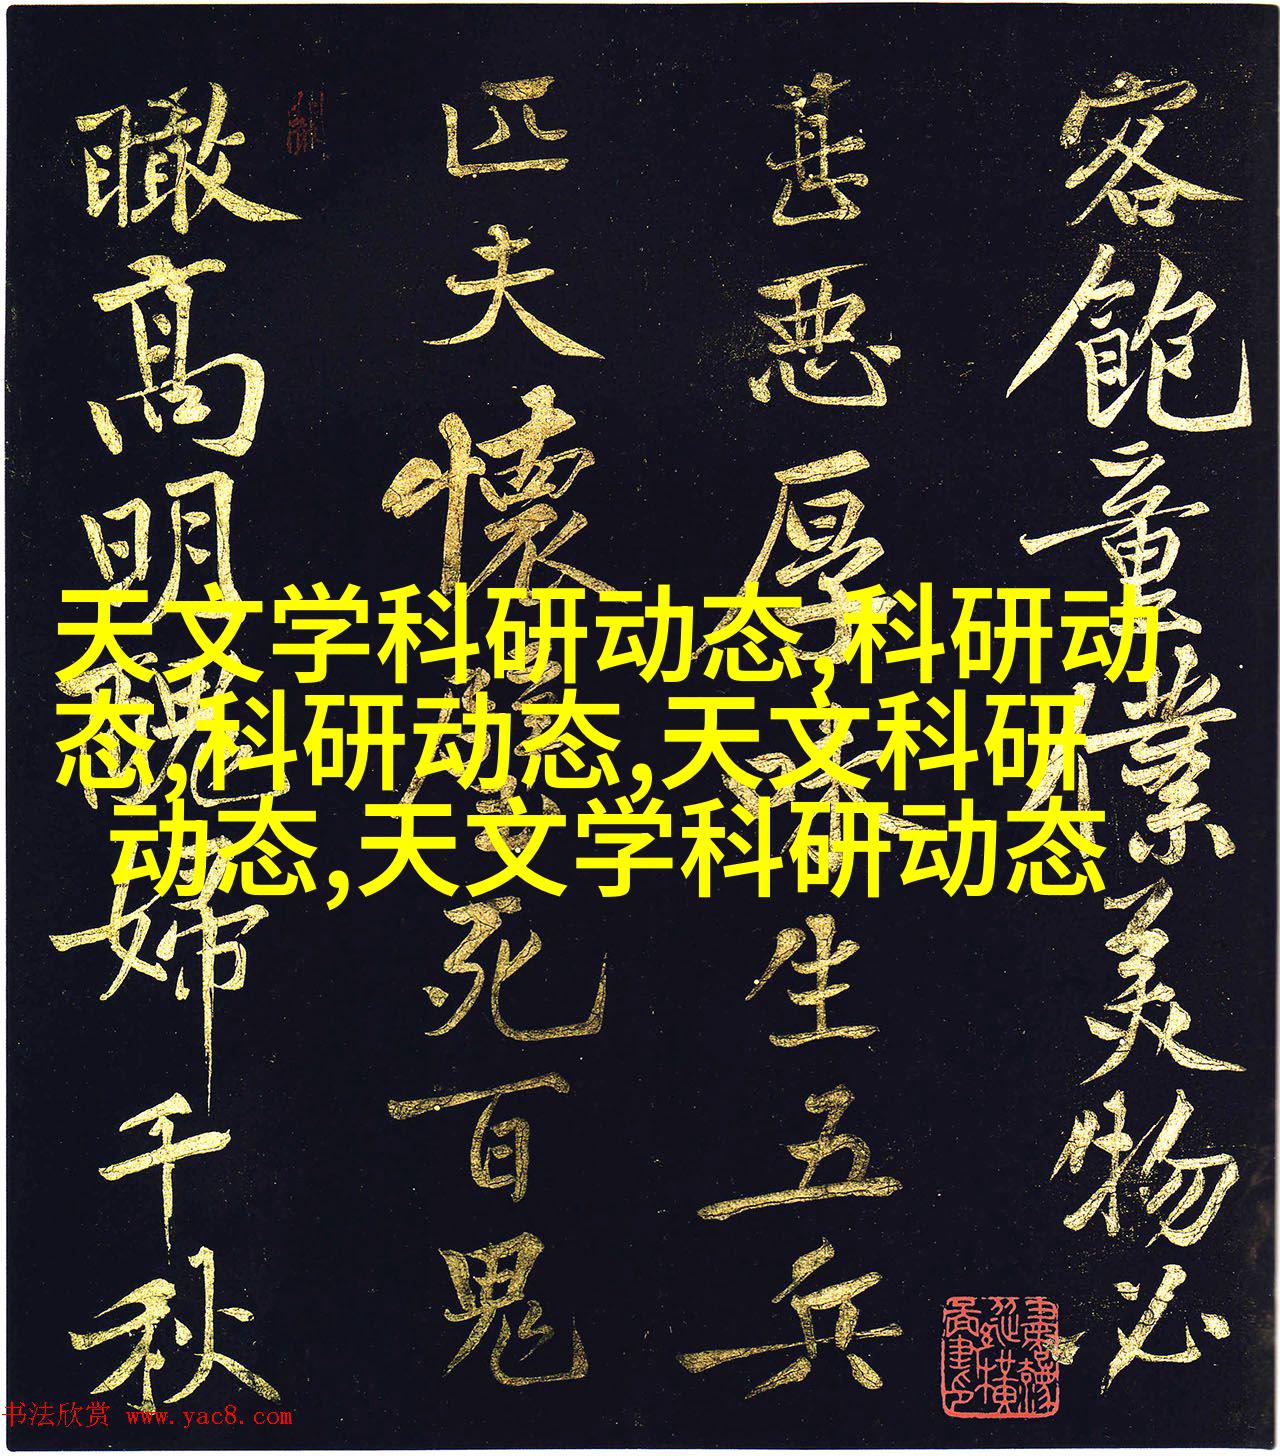 客飽童僕美物必
甚惡厚味生五兵
匹夫懷璧死百鬼
瞰高明醜婦千秋
天文学科研动态,科研动
态,科研动态,天文科研
动态,天文学科研动态
书法欣赏 www.yac8.com